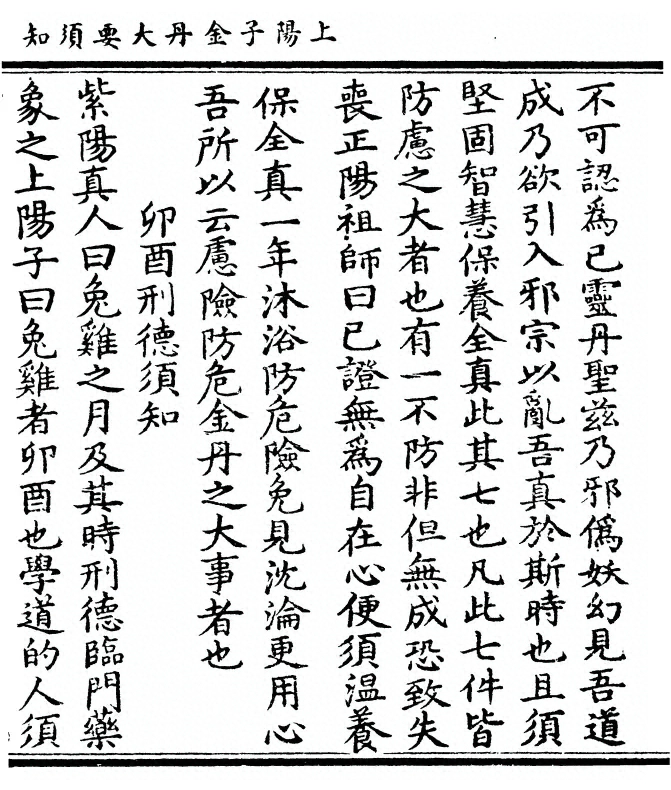 上陽子金丹大要須知
不可認爲已靈丹聖茲乃邪僞妖幻見吾道
成乃欲引入邪宗以亂吾真於斯時也且須
堅固智慧保養全真此其七也凡此七件皆
防慮之大者也有一不防非但無成恐致失
喪正陽祖師曰已證無爲自在心便須温養
保全真一年沐浴防危險免見沈淪更用心
吾所以云慮險防危金丹之大事者也
卯酉刑德須知
紫陽真人曰兔雞之月及其時刑德臨門藥
象之上陽子曰兔雞者卯酉也學道的人須